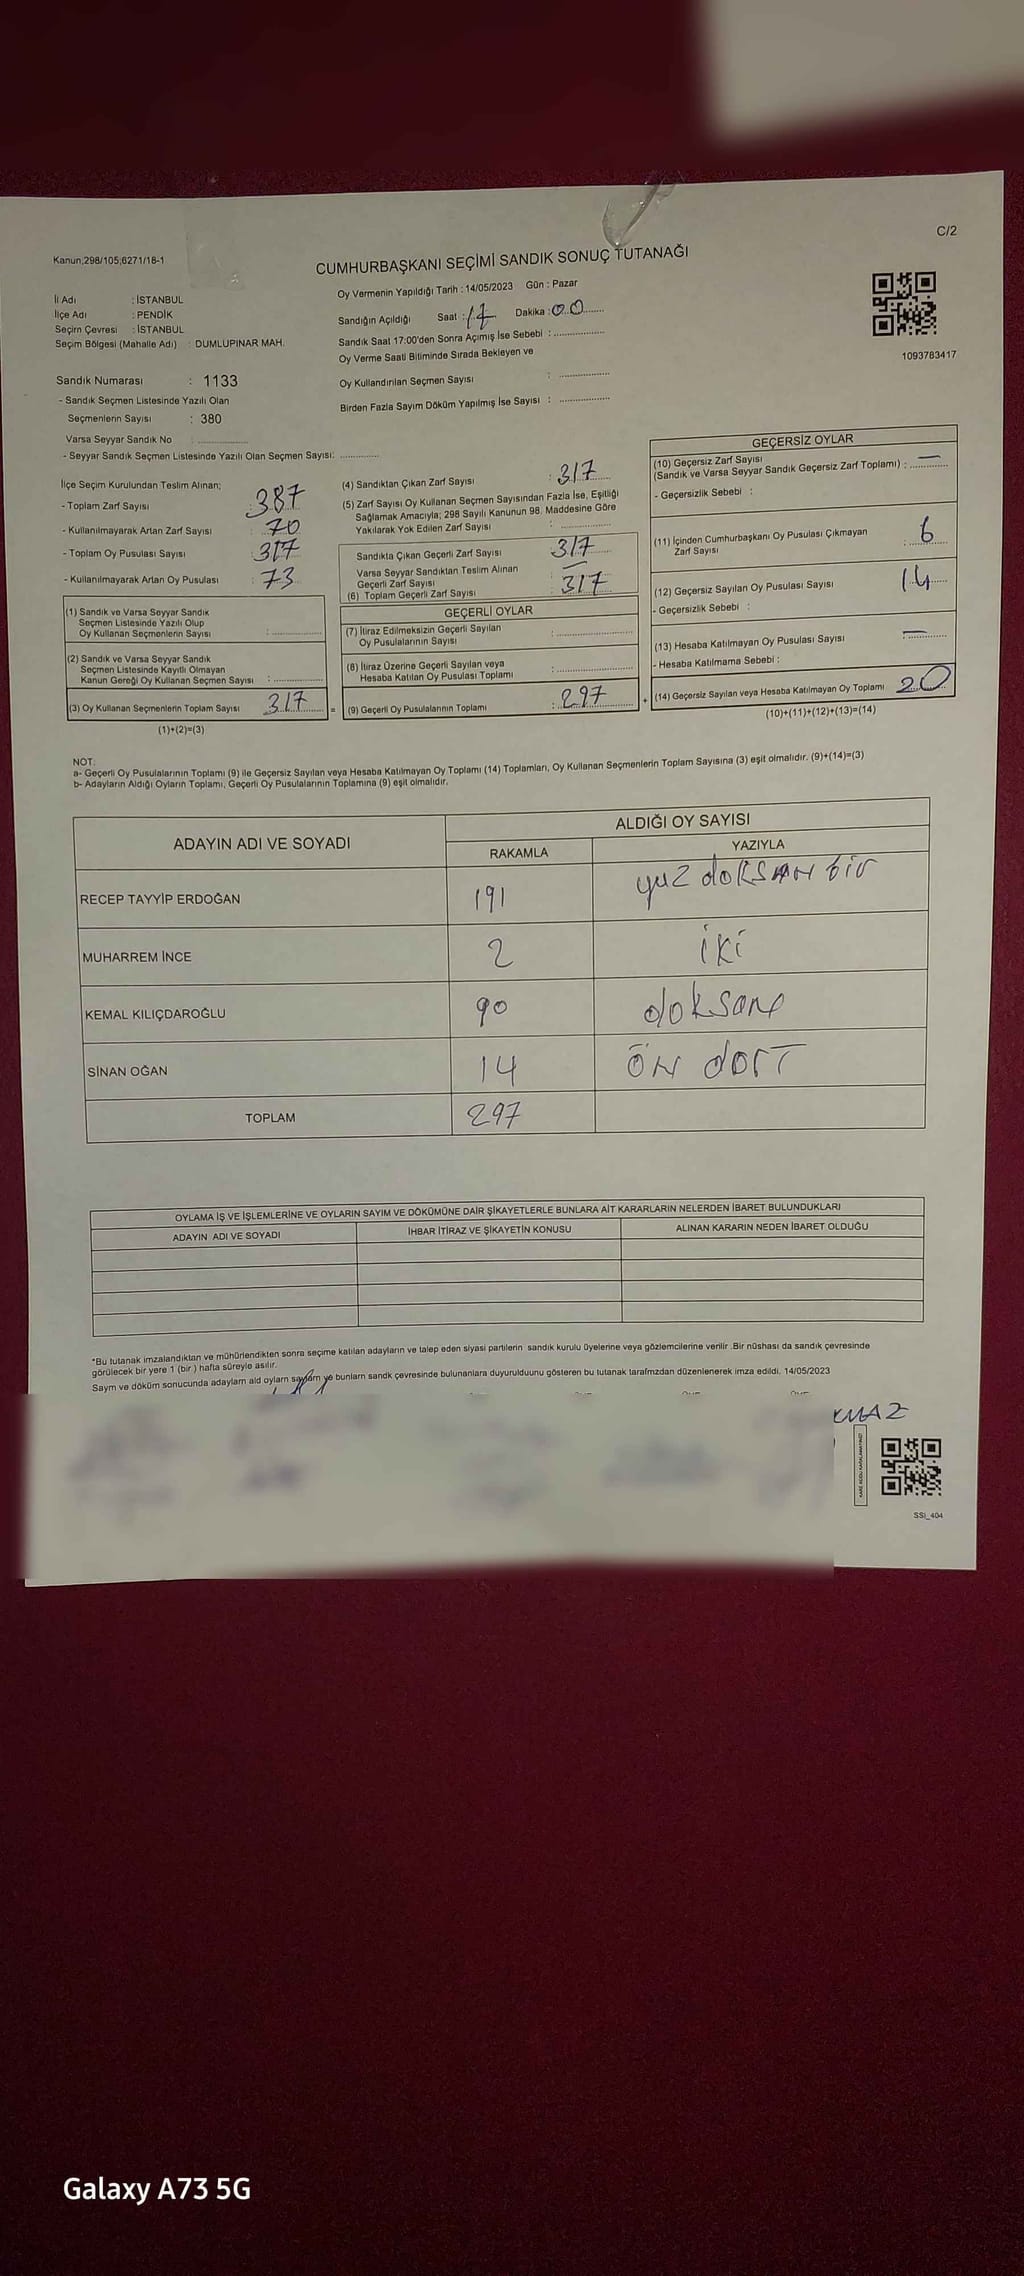 C/2
Kanun;298/105;6271/18-1
CUMHURBAŞKANI SEÇİMİ SANDIK SONUÇ TUTANAĞI
İl Adı : İSTANBUL
İlçe Adı : PENDİK
Seçim Çevresi : İSTANBUL
Seçim Bölgesi (Mahalle Adı) : DUMLUPINAR MAH.
Sandık Numarası : 1133
- Sandık Seçmen Listesinde Yazılı Olan
Seçmenlerin Sayısı : 380
Varsa Seyyar Sandık No : ..............
- Seyyar Sandık Seçmen Listesinde Yazılı Olan Seçmen Sayısı: ............
Oy Vermenin Yapıldığı Tarih : 14/05/2023 Gün : Pazar
Sandığın Açıldığı Saat : 17 Dakika : 00
Sandık Saat 17:00'den Sonra Açımış İse Sebebi : ..............
Oy Verme Saati Bitiminde Sırada Bekleyen ve
Oy Kullandırılan Seçmen Sayısı : ..............
Birden Fazla Sayım Döküm Yapılmış İse Sayısı : ..............
1093783417
İlçe Seçim Kurulundan Teslim Alınan;
- Toplam Zarf Sayısı : 387
- Kullanılmayarak Artan Zarf Sayısı : 70
- Toplam Oy Pusulası Sayısı : 317
- Kullanılmayarak Artan Oy Pusulası : 73
(1) Sandık ve Varsa Seyyar Sandık
Seçmen Listesinde Yazılı Olup
Oy Kullanan Seçmenlerin Sayısı : ..............
(2) Sandık ve Varsa Seyyar Sandık
Seçmen Listesinde Kayıtlı Olmayan
Kanun Gereği Oy Kullanan Seçmen Sayısı : ..............
(3) Oy Kullanan Seçmenlerin Toplam Sayısı 317
(1)+(2)=(3)
(4) Sandıktan Çıkan Zarf Sayısı : 317
(5) Zarf Sayısı Oy Kullanan Seçmen Sayısından Fazla İse, Eşitliği
Sağlamak Amacıyla; 298 Sayılı Kanunun 98. Maddesine Göre
Yakılarak Yok Edilen Zarf Sayısı : ..............
Sandıkta Çıkan Geçerli Zarf Sayısı 317
Varsa Seyyar Sandıktan Teslim Alınan
Geçerli Zarf Sayısı —
(6) Toplam Geçerli Zarf Sayısı : 317
GEÇERLİ OYLAR
(7) İtiraz Edilmeksizin Geçerli Sayılan
Oy Pusulalarının Sayısı : ..............
(8) İtiraz Üzerine Geçerli Sayılan veya
Hesaba Katılan Oy Pusulası Toplamı : ..............
= (9) Geçerli Oy Pusulalarının Toplamı : 297
GEÇERSİZ OYLAR
(10) Geçersiz Zarf Sayısı
(Sandık ve Varsa Seyyar Sandık Geçersiz Zarf Toplamı) : —
- Geçersizlik Sebebi :
(11) İçinden Cumhurbaşkanı Oy Pusulası Çıkmayan
Zarf Sayısı : 6
(12) Geçersiz Sayılan Oy Pusulası Sayısı 14
- Geçersizlik Sebebi :
(13) Hesaba Katılmayan Oy Pusulası Sayısı —
- Hesaba Katılmama Sebebi :
+ (14) Geçersiz Sayılan veya Hesaba Katılmayan Oy Toplamı 20
(10)+(11)+(12)+(13)=(14)
NOT:
a- Geçerli Oy Pusulalarının Toplamı (9) ile Geçersiz Sayılan veya Hesaba Katılmayan Oy Toplamı (14) Toplamları, Oy Kullanan Seçmenlerin Toplam Sayısına (3) eşit olmalıdır. (9)+(14)=(3)
b- Adayların Aldığı Oyların Toplamı, Geçerli Oy Pusulalarının Toplamına (9) eşit olmalıdır.
ADAYIN ADI VE SOYADI ALDIĞI OY SAYISI
RAKAMLA YAZIYLA
RECEP TAYYİP ERDOĞAN 191 yuz doksan bir
MUHARREM İNCE 2 iki
KEMAL KILIÇDAROĞLU 90 doksan
SİNAN OĞAN 14 ÖN dört
TOPLAM 297
OYLAMA İŞ VE İŞLEMLERİNE VE OYLARIN SAYIM VE DÖKÜMÜNE DAİR ŞİKAYETLERLE BUNLARA AİT KARARLARIN NELERDEN İBARET BULUNDUKLARI
ADAYIN ADI VE SOYADI İHBAR İTİRAZ VE ŞİKAYETİN KONUSU ALINAN KARARIN NEDEN İBARET OLDUĞU
*Bu tutanak imzalandıktan ve mühürlendikten sonra seçime katılan adayların ve talep eden siyasi partilerin sandık kurulu üyelerine veya gözlemcilerine verilir .Bir nüshası da sandık çevresinde
görülecek bir yere 1 (bir ) hafta süreyle asılır.
Sayım ve döküm sonucunda adayların ald oyların sayıları ve bunların sandk çevresinde bulunanlara duyurulduunu gösteren bu tutanak tarafmzdan düzenlenerek imza edildi. 14/05/2023
KMAZ
SSI_404
Galaxy A73 5G